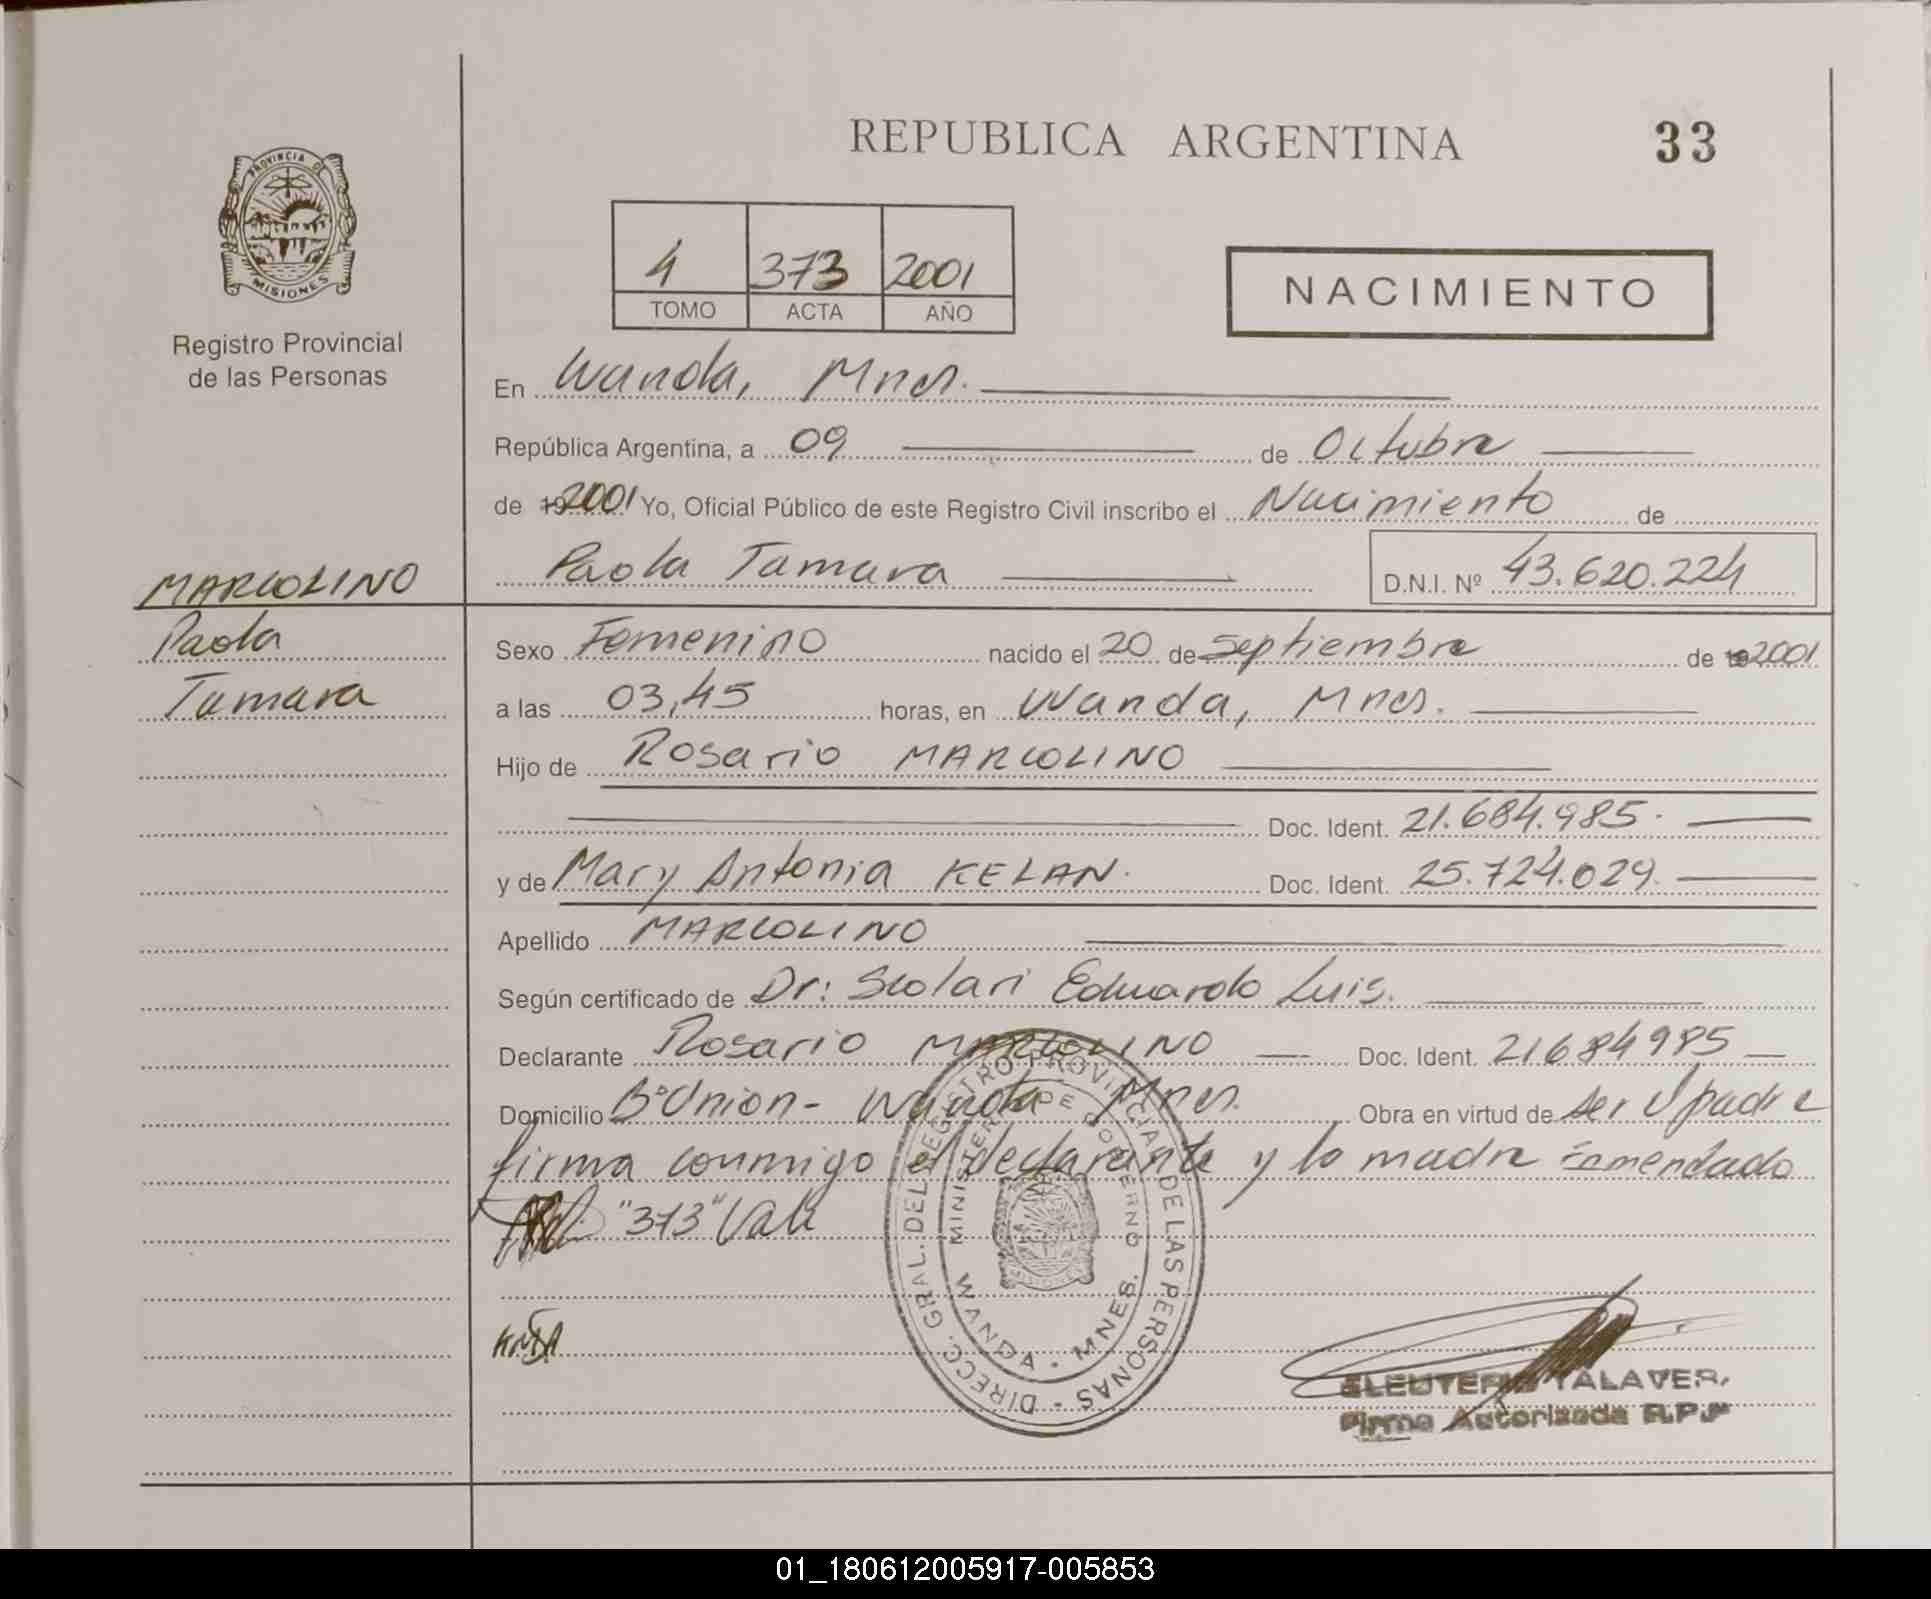 REPUBLICA ARGENTINA
33
PROVINCIA DE
MISIONES
Registro Provincial
de las Personas
4 373 2001
TOMO ACTA AÑO
NACIMIENTO
En Wanda, Mnes.
República Argentina, a 09 de Octubre
de 19 2001 Yo, Oficial Público de este Registro Civil inscribo el Nacimiento de
Paola Tamara D.N.I. Nº 43.620.224
MARCOLINO
Paola
Tamara
Sexo Femenino nacido el 20 de Septiembre de 2001
a las 03,45 horas, en Wanda, Mnes.
Hijo de Rosario MARCOLINO
Doc. Ident. 21.684.985.
y de Mary Antonia KELAN. Doc. Ident. 25.724.029.
Apellido MARCOLINO
Según certificado de Dr: Scolari Eduardo Luis.
Declarante Rosario MARCOLINO Doc. Ident. 21684985
Domicilio Bº Union - Wanda Mnes. Obra en virtud de ser el padre
firma conmigo el declarante y la madre Enmendado
"373" Vale
DIRECC. GRAL. DEL REGISTRO PROVINCIAL DE LAS PERSONAS
MINISTERIO DE GOBIERNO
WANDA - MNES.
ELEUTERIO TALAVER
Firma Autorizada R.P.P
01_180612005917-005853